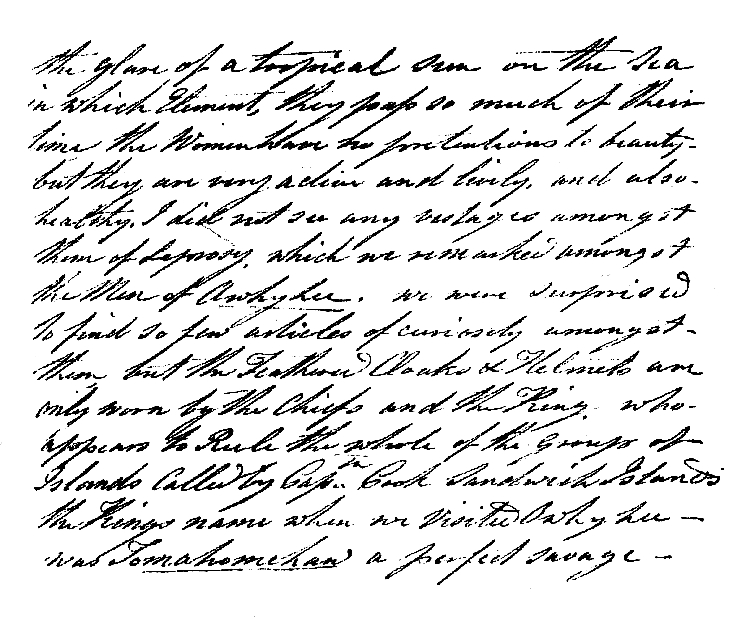 the glare of a tropical sun on the sea
in which Element, they pass so much of their
time the Women have no pretentions to beauty-
but they are very active and lively, and also-
healthy. I did not see any vestages amongst
them of Leprosy, which we remarked amongst
the Men of Awhyhee. we were surprised
to find so few articles of curiosety amongst-
them but the Feathered Cloaks & Helmets are
only worn by the Chiefs and the King. who-
appears to Rule the whole of the group of
Islands Called by Capn. Cook Sandwich Islands
the Kings name when we Visited Owhyhee -
was Tomahomehaw a perfect savage -